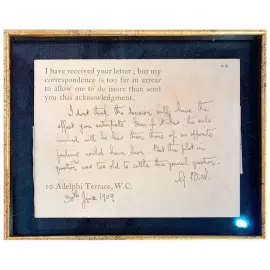 I have received your letter; but my
correspondence is too far in arrear
to allow me to do more than send
you this acknowledgment.
I don't think the decision will have the
effect you anticipate. Even if it does, the
mind will be less than those of an opposite
finding would have been. But the pilot in
question was too old to settle the general question.
G.B.S.
10 Adelphi Terrace, W.C.
30th June 1909